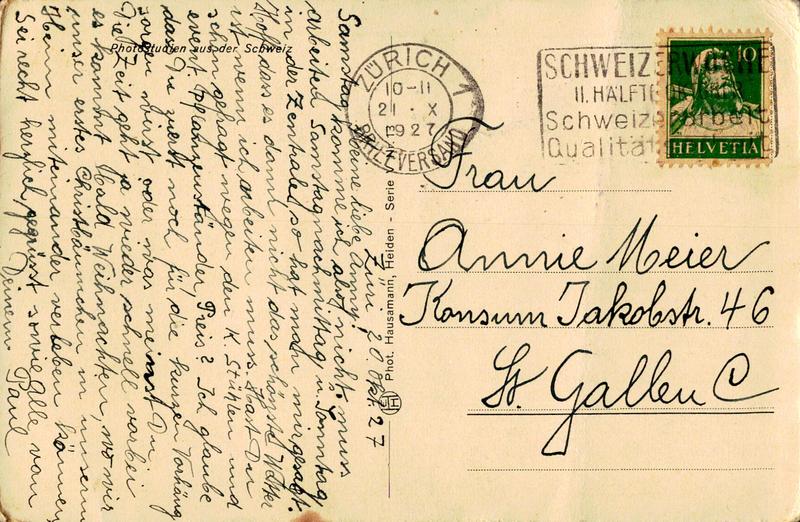 Photostudien aus der Schweiz
Züri 20 Okt. 27
Meine liebe Anny!
Samstag komme ich also nicht, muss
arbeiten Samstagnachmittag u. Sonntag
in der Zentrale, so hat man mir gesagt.
Hoff, dass es dann nicht das schönste Wetter
ist wenn ich arbeiten muss. Hast Du
schon gefragt wegen den K. Stühlen und
event. Pflanzenständer, Preis? Ich glaube
dass Du zuerst noch für die kurzen Vorhäng
sorgen wirst oder was meinst Du
Die Zeit geht ja wieder schnell vorbei
es kommt bald Weihnachten, wo wir
unser erstes Christbäumchen in unserm
Heim miteinander verleben können
Sei recht herzlich gegrüsst sowie alle von
Deinem Paul
Phot. Hausamann, Heiden - Serie
H
ZÜRICH 1
10-11
21 · X
1927
BRIEFVERSAND
SCHWEIZERWOCHE
II. HÄLFTE
Schweizerarbeit
Qualität
10
HELVETIA
Frau
Annie Meier
Konsum Jakobstr. 46
St. Gallen C